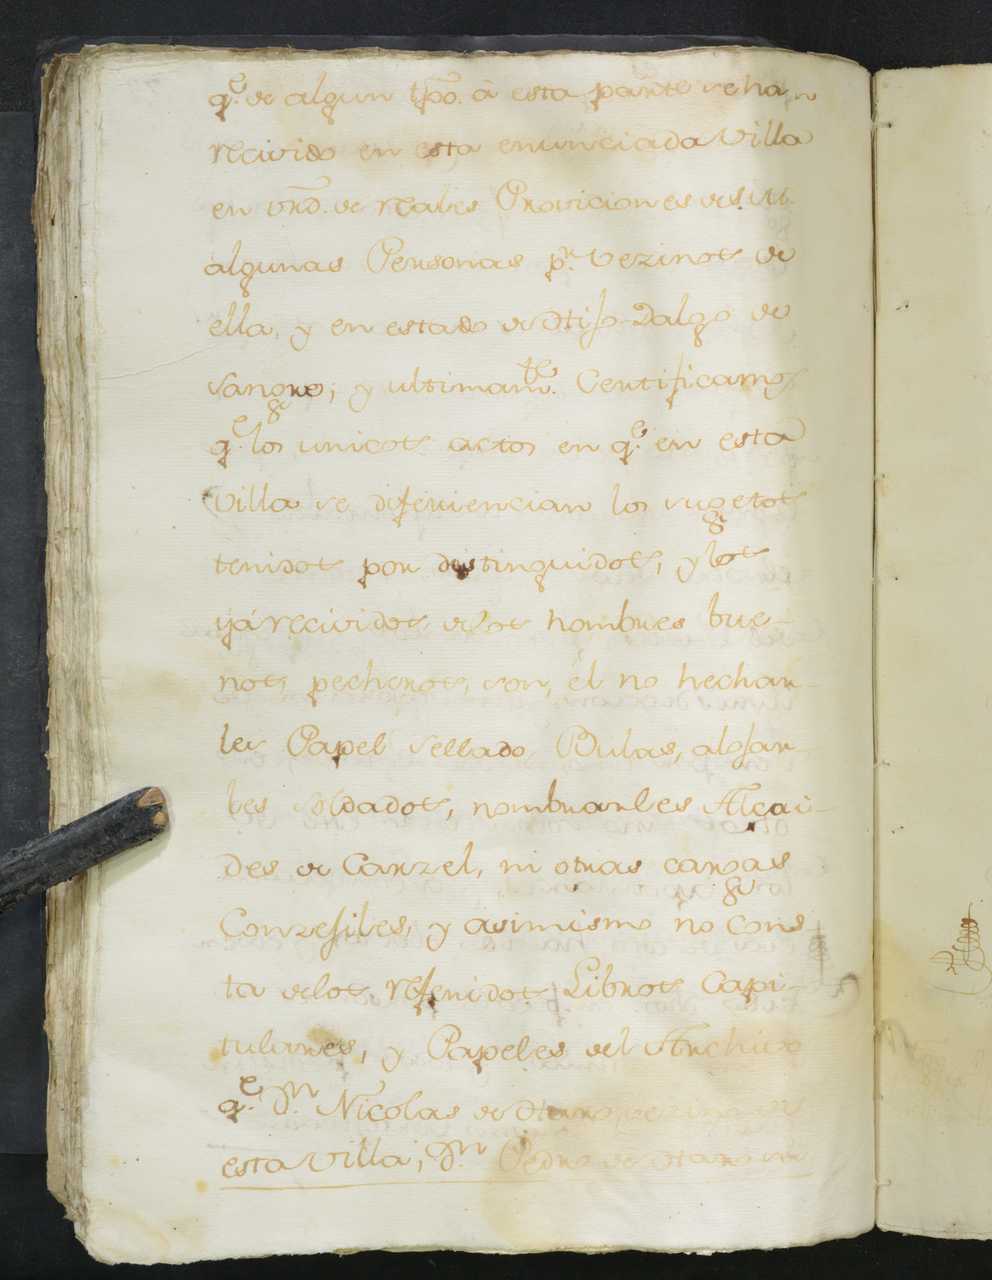 q.e de algun tpo. à esta parte se han
recivido en esta enunciada Villa
en vrd. de reales Proviciones de S. M.
algunas Personas p.r Vezinos de
ella, y en estado de Hijo-Dalgo de
sangre; y ultimam.te Certificamos
q.e los unicos actos en q.e en esta
Villa se diferiencian los sugetos
tenidos por distinguidos, y los
yá recividos de los hombres bue-
nos, pecheros, son, el no hechar-
les Papel sellado, Bulas, aloxar-
les soldados, nombrarles Alcai-
des de Carzel, ni otras cargas
Conzegiles, y asimismo no cons-
ta de los referidos Libros Capi-
tulares, y Papeles del Archivo
q.e D.n Nicolas de Otano vezino de
esta Villa, D.n Pedro de Otano